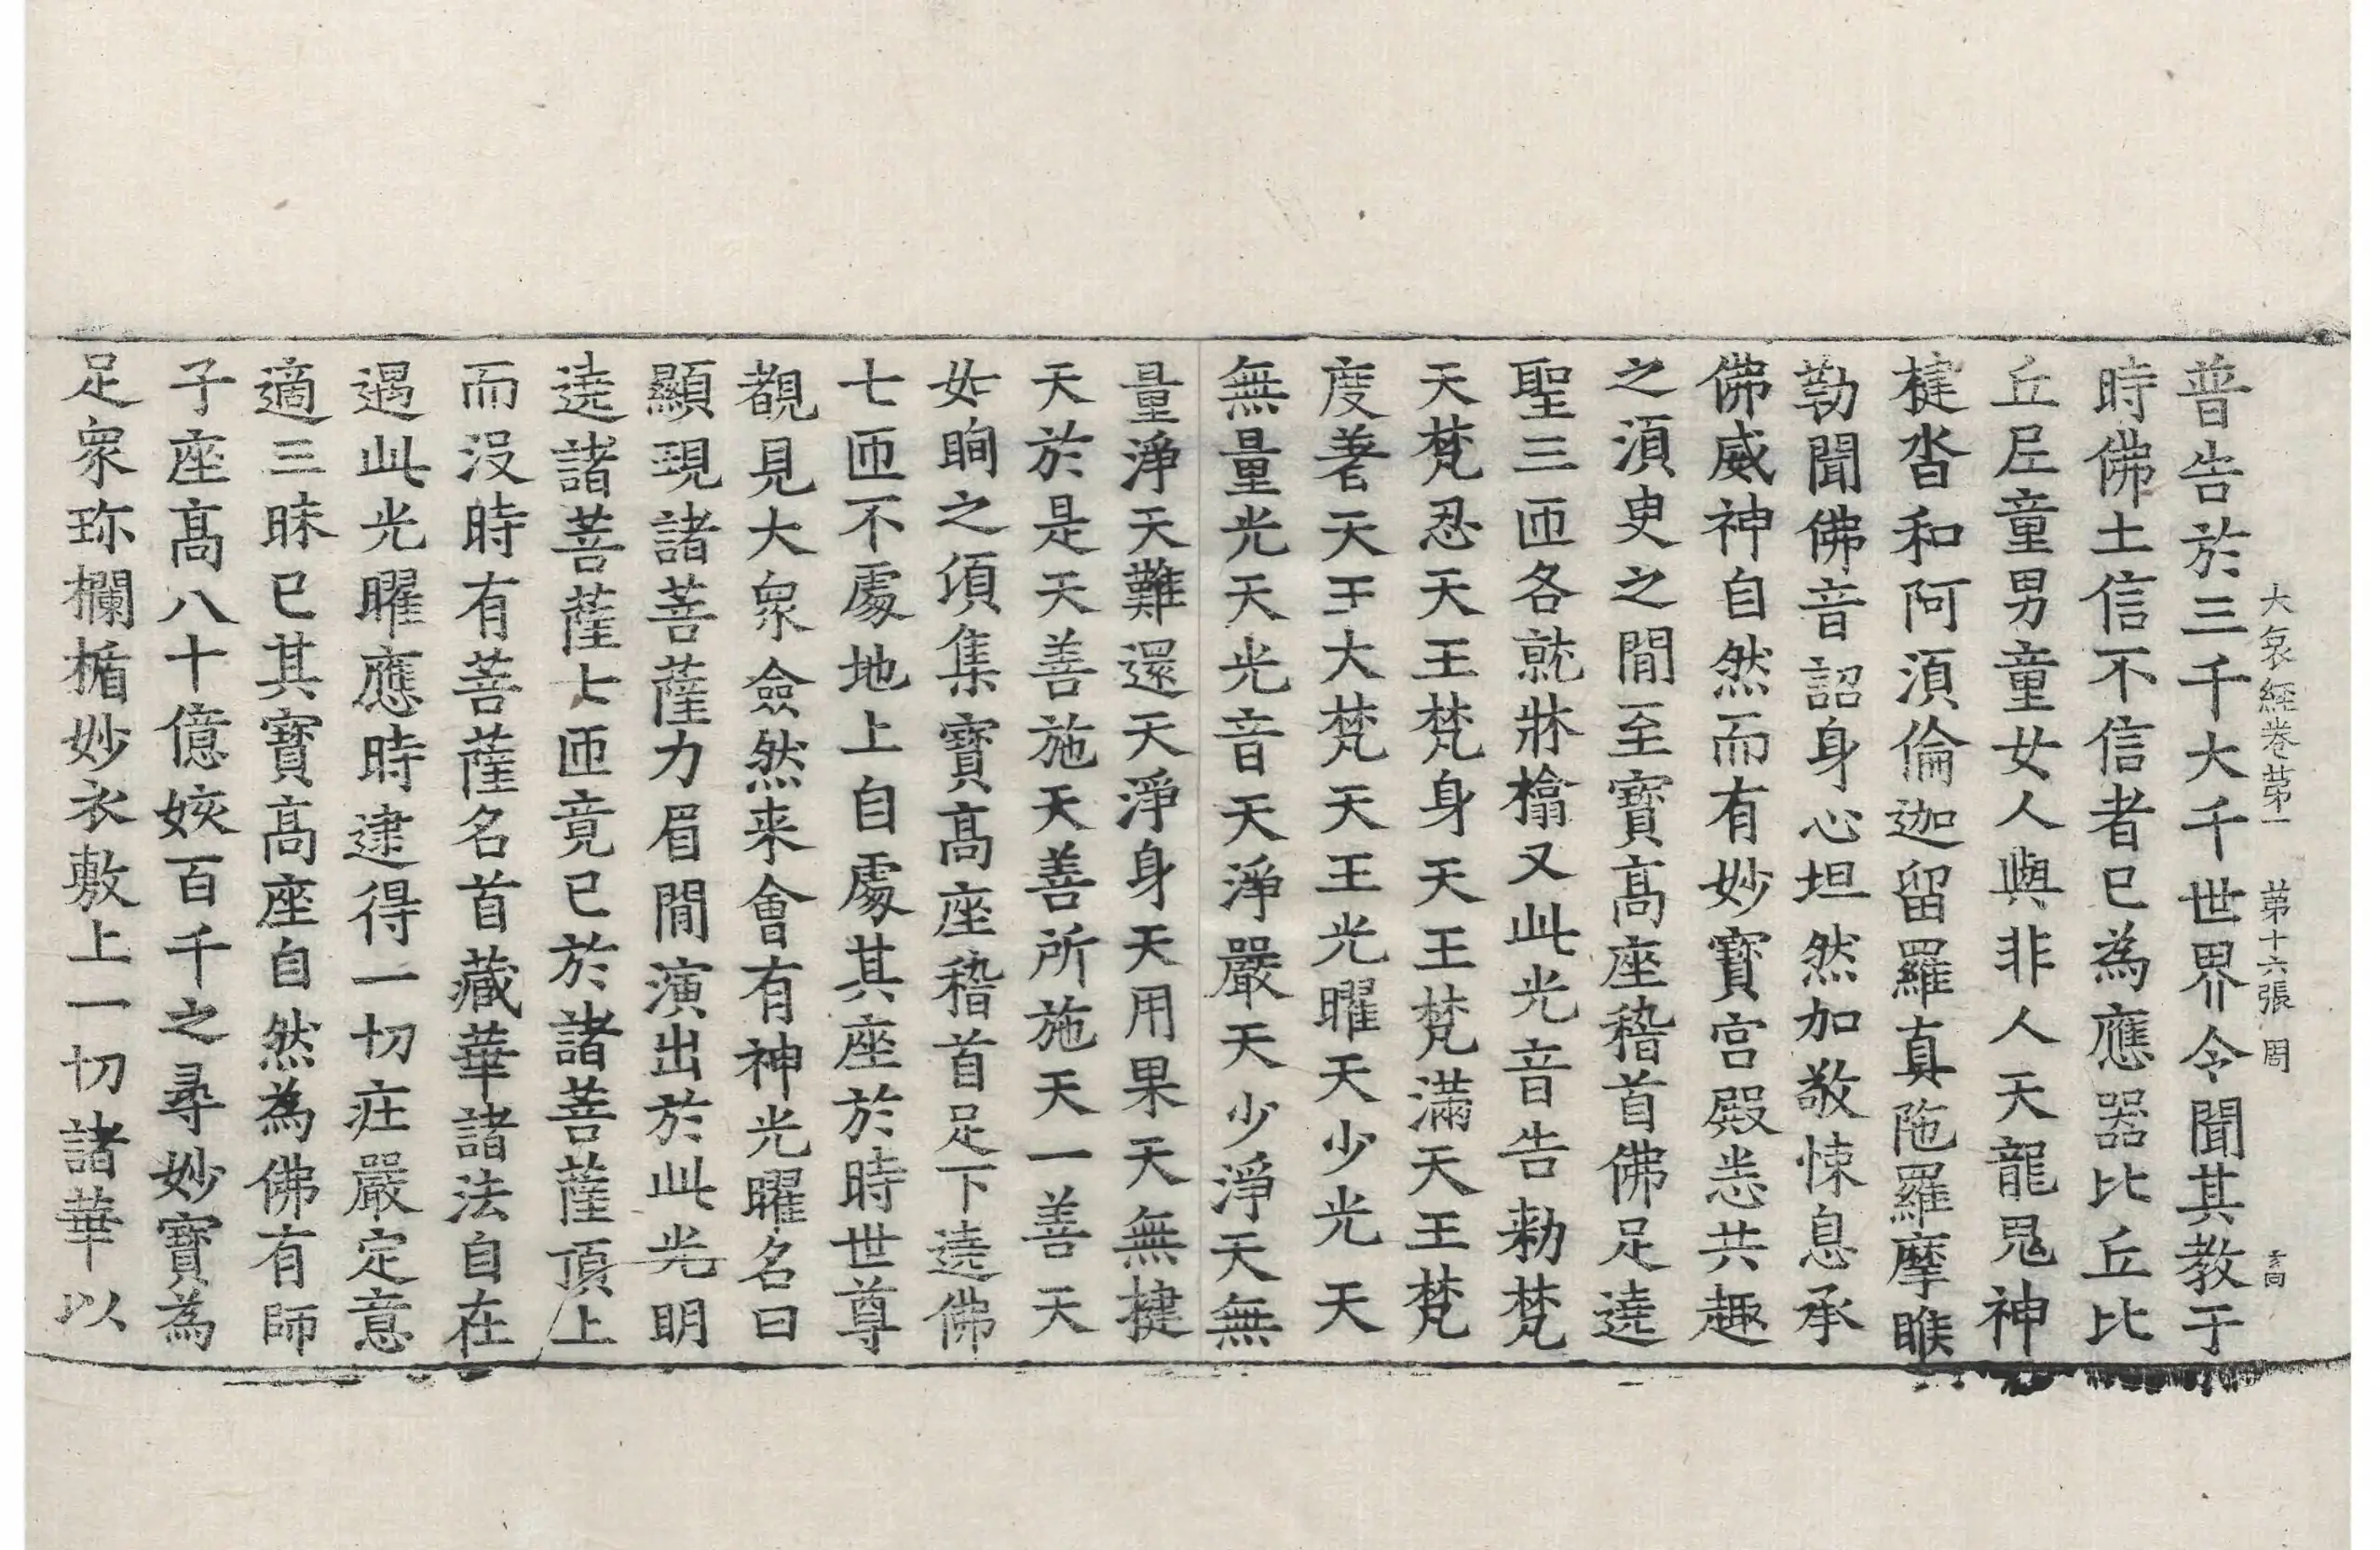 大哀經卷第一　第十六張　周
普告於三千大千世界令聞其教于
時佛土信不信者已為應器比丘比
丘尼童男童女人與非人天龍鬼神
揵沓和阿須倫迦留羅真陁羅摩睺
勒聞佛音詔身心坦然加敬悚息承
佛威神自然而有妙寶宫殿恙共趣
之須臾之閒至寶髙座稽首佛足遶
聖三匝各就牀榻又此光音告勑梵
天梵忍天王梵身天王梵滿天王梵
度著天王大梵天王光曜天少光天
無量光天光音天淨嚴天少淨天無
量淨天難還天淨身天用果天無揵
天於是天善施天善所施天一善天
如眴之頃集寶髙座稽首足下遶佛
七匝不處地上自處其座於時世尊
覩見大衆僉然来會有神光曜名曰
顯現諸菩薩力眉閒演出於此光明
遶諸菩薩七匝竟已於諸菩薩頂上
而没時有菩薩名首藏華諸法自在
遇此光曜應時逮得一切莊嚴定意
適三昧已其寶髙座自然為佛有師
子座髙八十億姟百千之尋妙寶為
足衆珎欄楯妙衣敷上一切諸華以